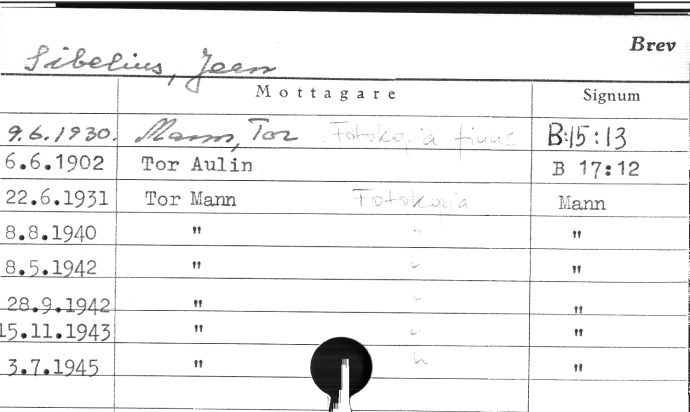 Brev
Sibelius, Jean
Mottagare Signum
9.6.1930. Mann, Tor Fotokopia finns B:15:13
6.6.1902 Tor Aulin B 17:12
22.6.1931 Tor Mann Fotokopia Mann
8.8.1940 " " "
8.5.1942 " " "
28.9.1942 " " "
15.11.1943 " " "
3.7.1945 " " "